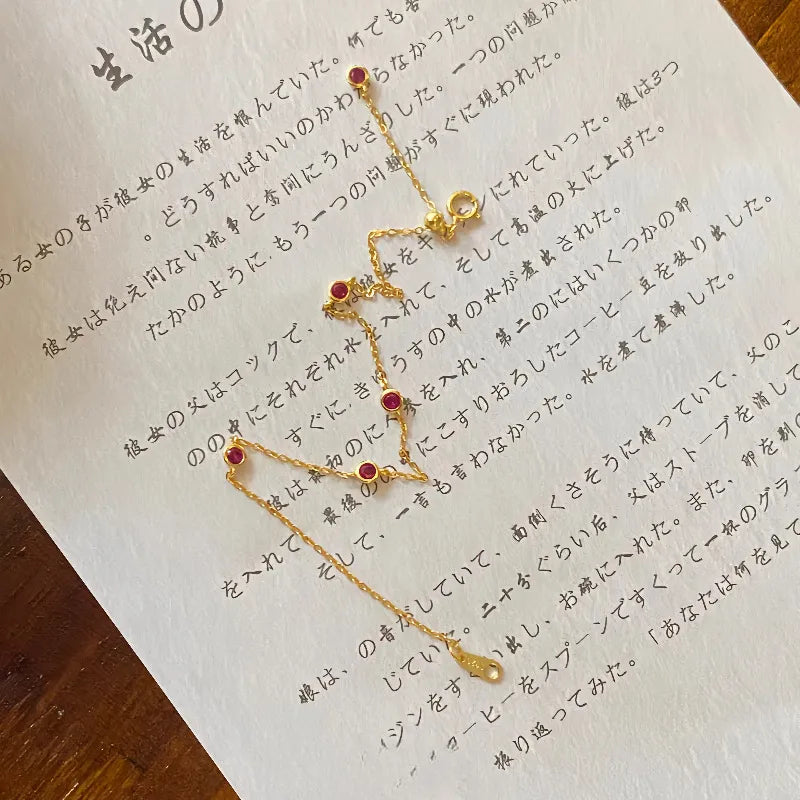 生活の
ある女の子が彼女の生活を恨んでいた。何でも
。どうすればいいのかわからなかった。
彼女は绝え间ない抗争と奋闘にうんざりした。一つの问题が
たかのように、もう一つの问题がすぐに现われた。
彼女の父はコックで、彼女をキ にれていった。彼は3つ
のの中にそれぞれ水を入れて、そして高温の火に上げた。
すぐに、き うすの中の水が煮出された。
彼は最初のに 参を入れ、第二のにはいくつかの卵
を入れて、最後のの中にこすりおろしたコーヒー豆を放り出した。
そして、一言も言わなかった。水を煮て煮沸した。
娘は、の音がしていて、面倒くさそうに待っていて、父のこ
じていた。二十分ぐらい后、父はストーブを消して
ジンをす い出し、お碗に入れた。また、卵を剥
コーヒーをスプーンですくって一杯のグラ
振り返ってみた。「あなたは何を見て